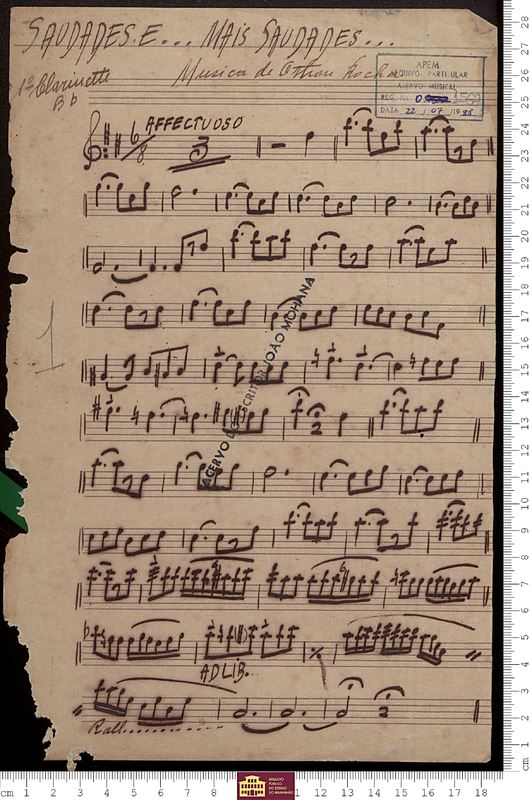 SAUDADES.E... MAIS SAUDADES...
1º Clarinette
Bb
Musica de Othon Rocha
APEM
ARQUIVO PARTICULAR
ACERVO MUSICAL
REG. Nº 1569
DATA 22 / 07 / 1988
AFFECTUOSO
6/8
3
1
ACERVO DO ESCRITOR JOÃO MOHANA
2
6
AD LIB.
Rall...............
2
cm 1 2 3 4 5 6 7 8 9 10 11 12 13 14 15 16 17 18
ARQUIVO
PÚBLICO
DO ESTADO
DO MARANHÃO
cm 1 2 3 4 5 6 7 8 9 10 11 12 13 14 15 16 17 18 19 20 21 22 23 24 25 26 27 28